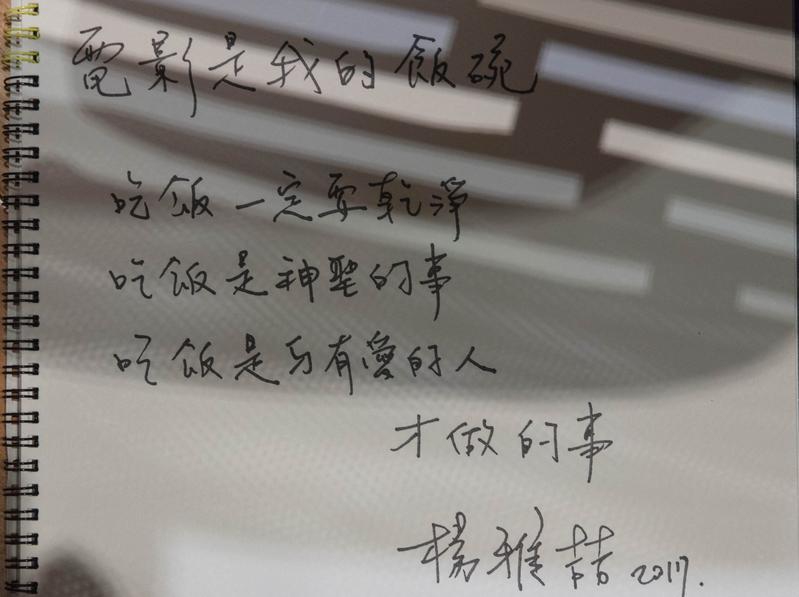 電影是我的飯碗
吃飯一定要乾淨
吃飯是神聖的事
吃飯是与有愛的人
才做的事
楊雅喆 2017.